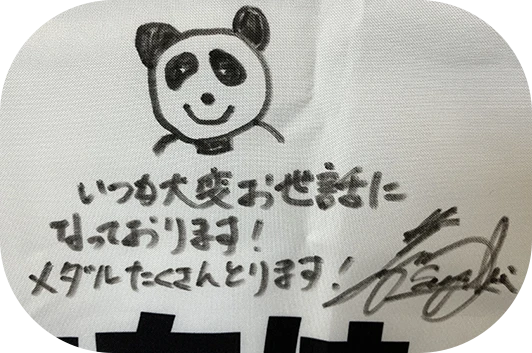 いつも大変お世話に
なっております!
メダルたくさんとります!